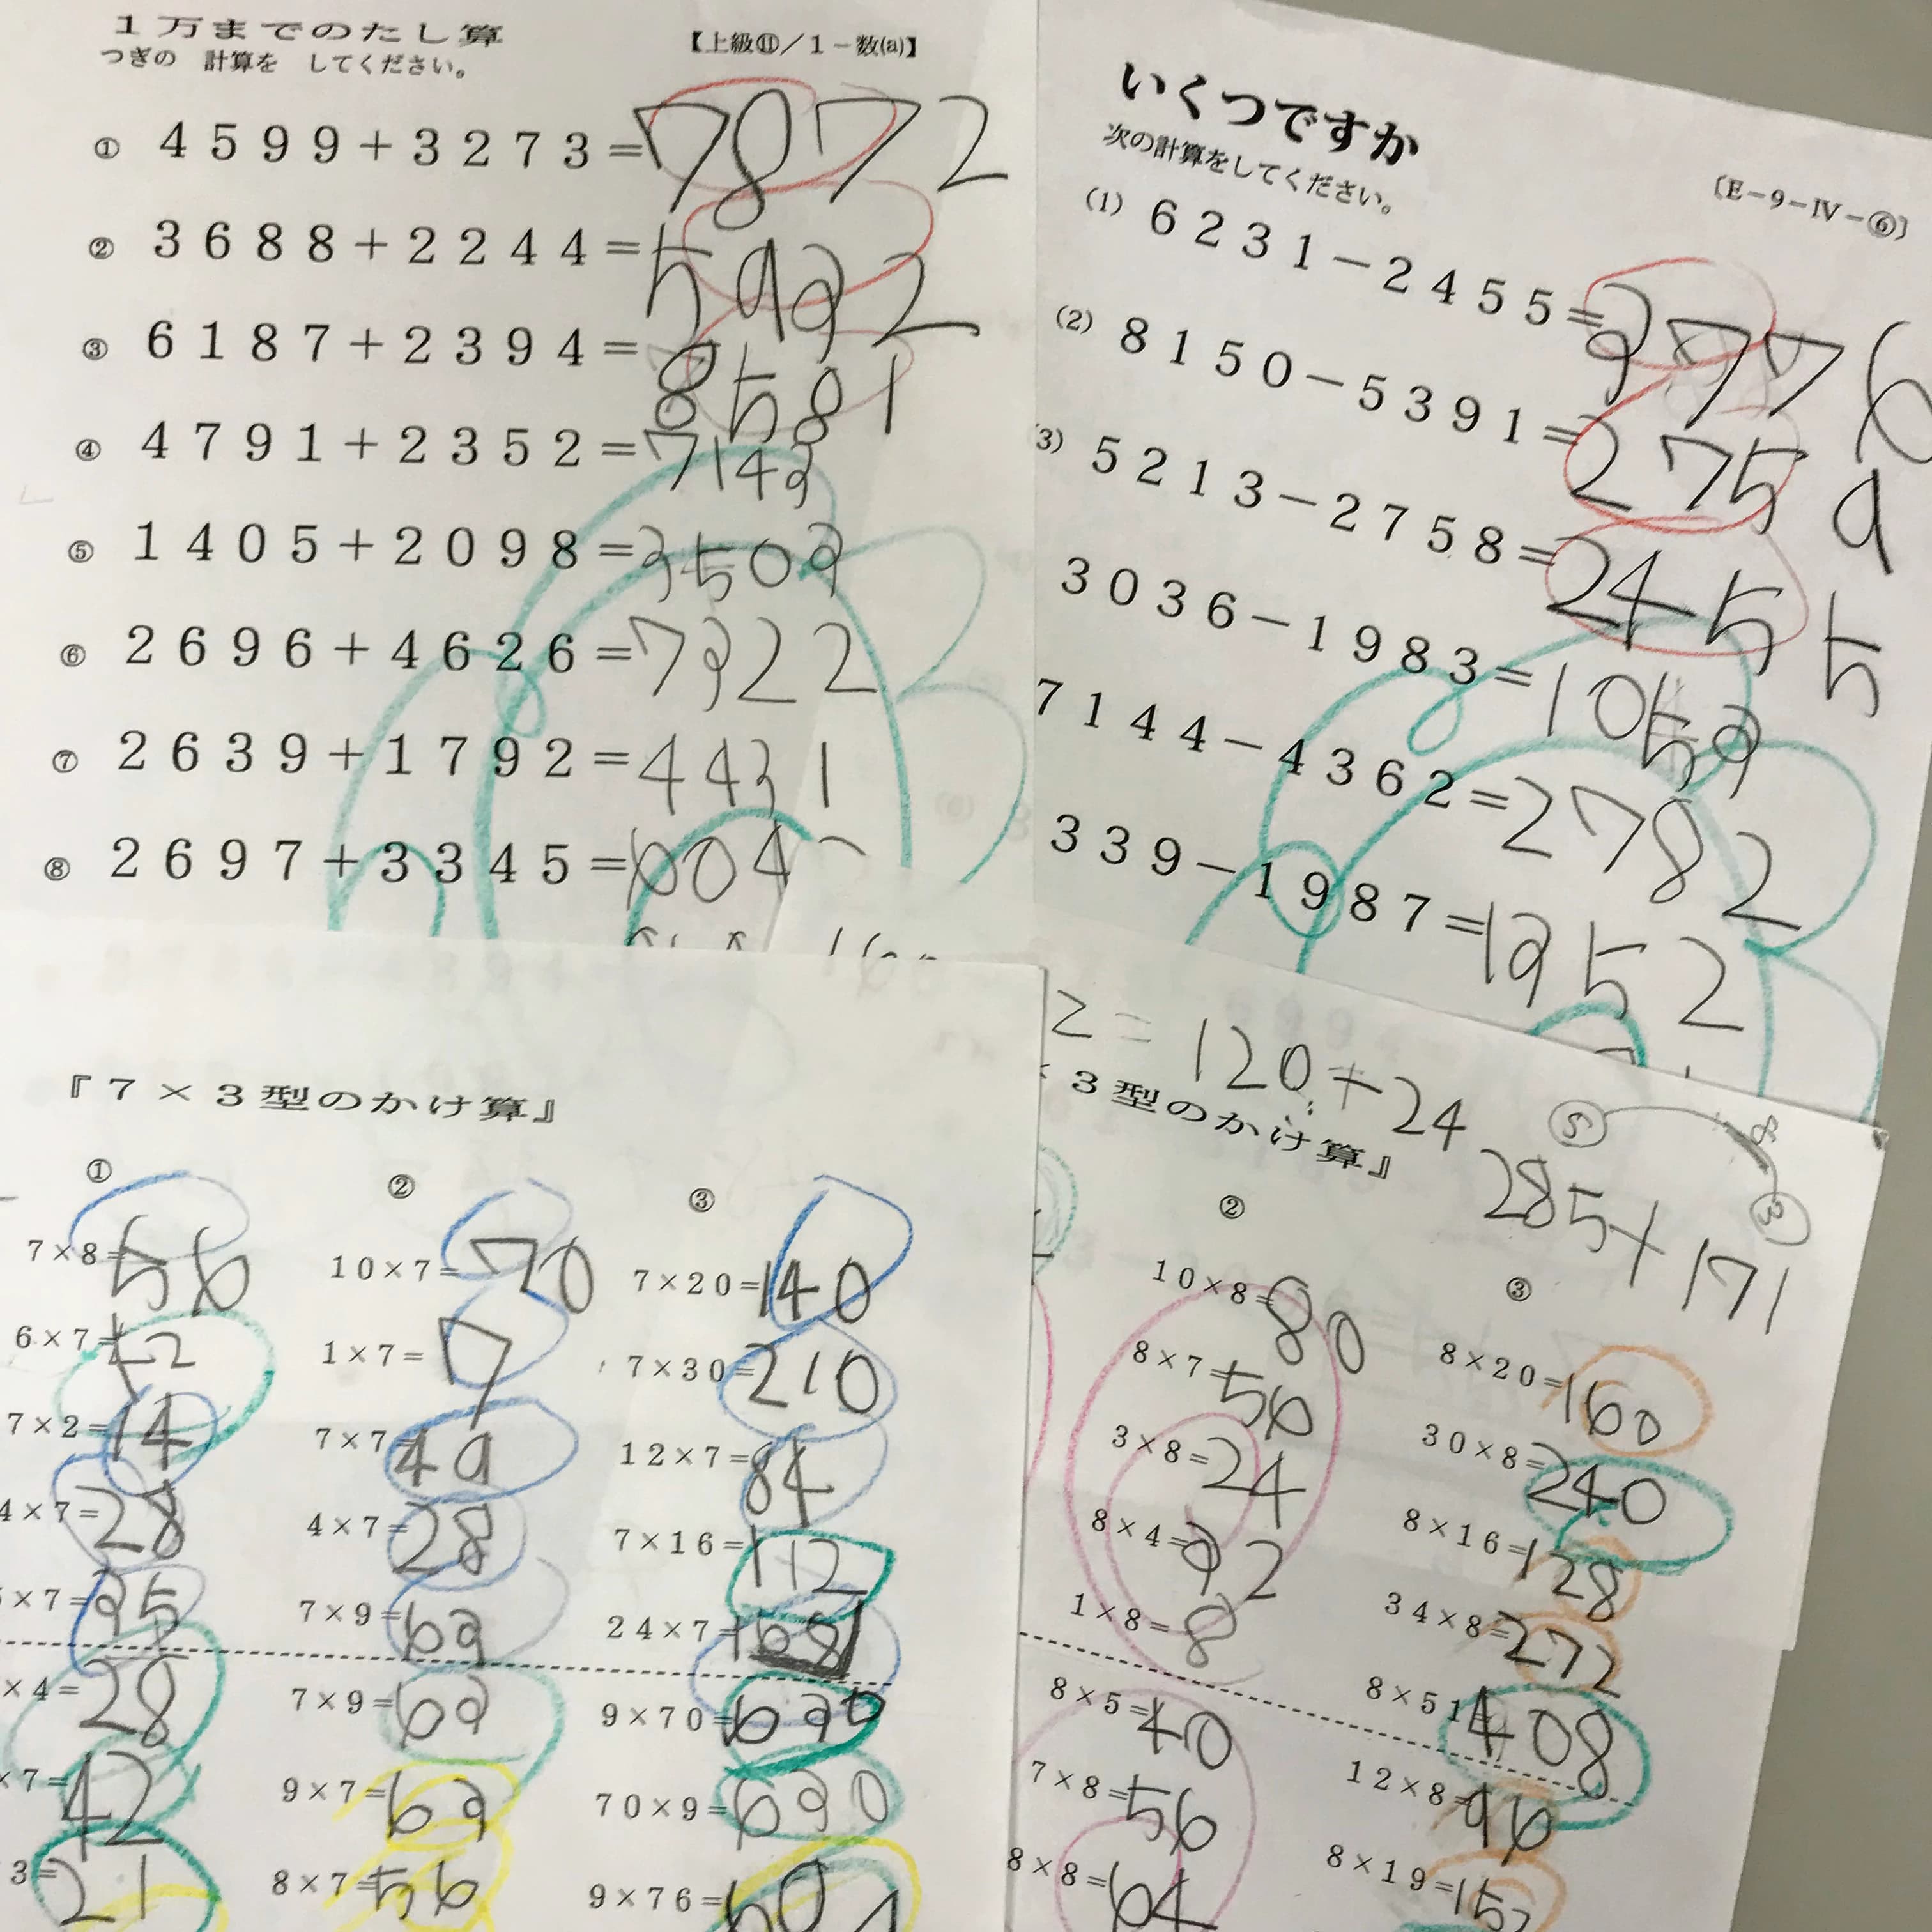 １万までのたし算
【上級⑪／１－数(a)】
つぎの 計算を してください。
① 4599+3273=7872
② 3688+2244=5932
③ 6187+2394=8581
④ 4791+2352=7143
⑤ 1405+2098=3503
⑥ 2696+4626=7322
⑦ 2639+1792=4431
⑧ 2697+3345=604
いくつですか
次の計算をしてください。
〔E－9－Ⅳ－⑥〕
(1) 6231－2455=3776
(2) 8150－5391=2759
(3) 5213－2758=2455
3036－1983=1053
7144－4362=2782
339－1987=1352
『７×３型のかけ算』
①
7×8=56
6×7=42
7×2=14
4×7=28
×7=35
×4=28
×7=42
3=21
②
10×7=70
1×7=7
7×7=49
4×7=28
7×9=63
7×9=63
9×7=63
8×7=56
③
7×20=140
7×30=210
12×7=84
7×16=112
24×7=168
9×70=630
70×9=630
9×76=
2=120+24
×３型のかけ算』
⑤
8
③
285+171
②
10×8=80
8×7=56
3×8=24
8×4=32
1×8=8
8×5=40
7×8=56
8×8=64
③
8×20=160
30×8=240
8×16=128
34×8=272
8×51=408
12×8=96
8×19=152